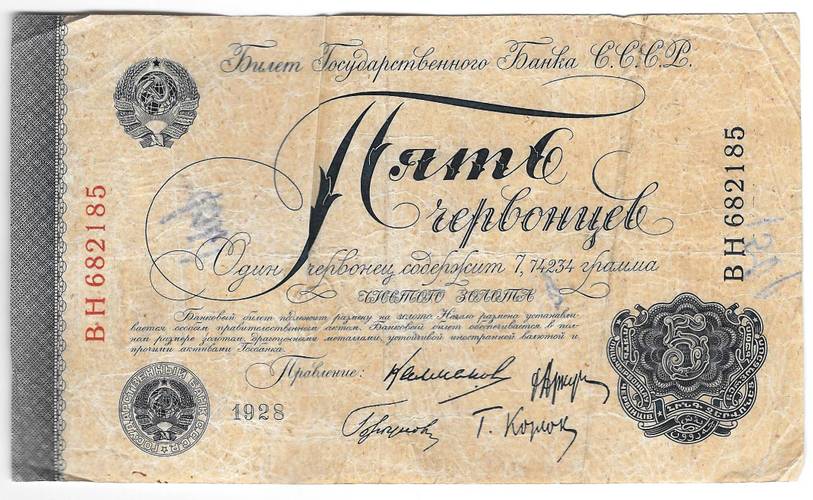 Билет Государственного Банка С.С.С.Р.
Пять
червонцев
Один червонец содержит 7,74234 грамма
чистого золота
Банковый билет подлежит размену на золото. Начало размена устанавли-
вается особым правительственным актом. Банковый билет обеспечивается в пол-
ном размере золотом, драгоценными металлами, устойчивой иностранной валютой и
прочими активами Госбанка.
Правление:
1928
ВН 682185
ВН 682185
ГОСУДАРСТВЕННЫЙ БАНК СССР
5